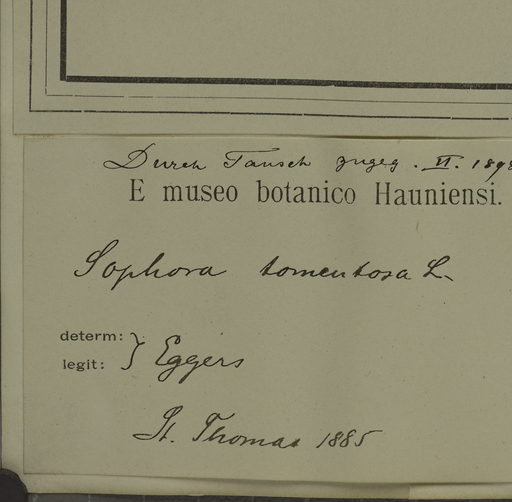 Durch Tausch zugeg. VI. 1898
E museo botanico Hauniensi.
Sophora tomentosa L.
determ:
legit: } Eggers
St. Thomas 1885